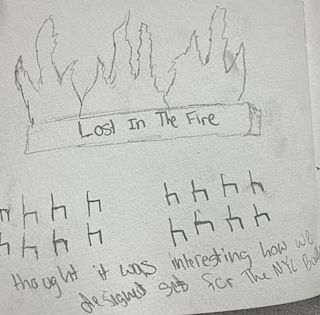 Lost In The Fire
thought it was interesting how we
designed sets for The NYC